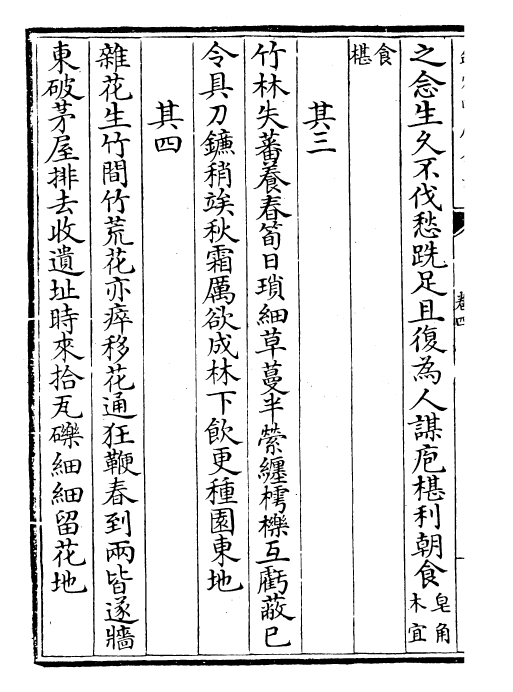 之念生久不伐愁跣足且復為人謀庖椹利朝食皂角木宜
食椹
其三
竹林失蕃養春筍日瑣細草蔓半縈纏樗櫟互虧蔽已
令具刀鐮稍竢秋霜厲欲成林下飲更種園東地
其四
雜花生竹間竹荒花亦瘁移花通狂鞭春到兩皆遂牆
東破茅屋排去收遺址時來拾瓦礫細細留花地
卷四